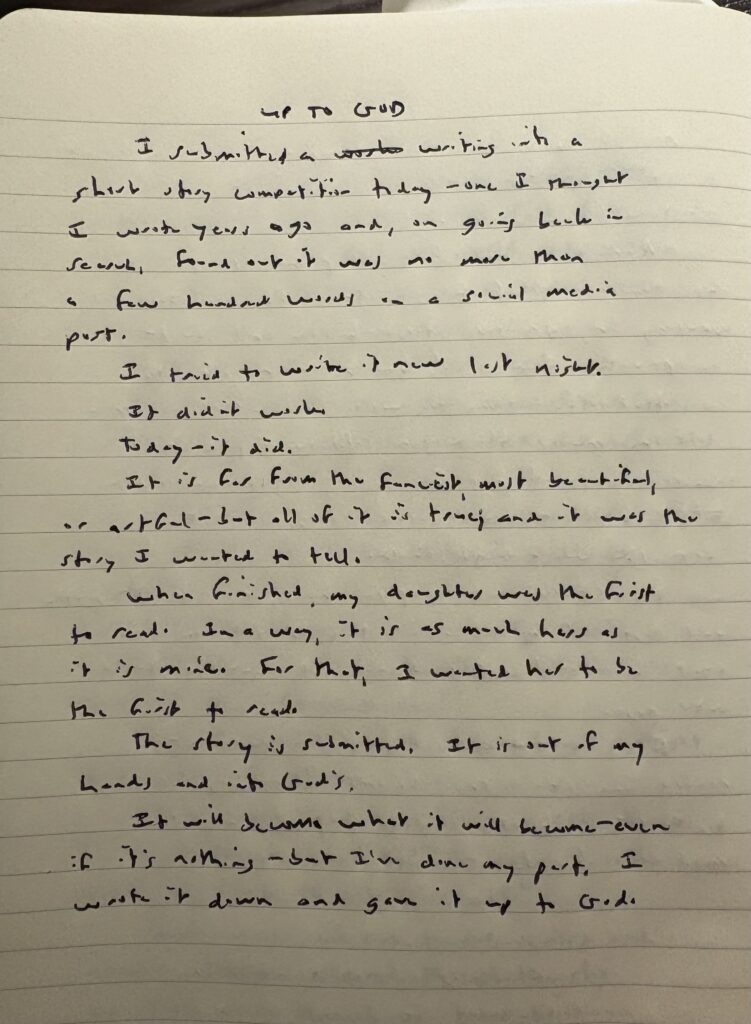 UP TO GOD
I submitted a writing into a
short story competition today - one I thought
I wrote years ago and, on going back in
search, found out it was no more than
a few hundred words on a social media
post.
I tried to write it new last night.
It didn't work.
Today - it did.
It is far from the fanciest, most beautiful,
or artful - but all of it is true; and it was the
story I wanted to tell.
When finished, my daughter was the first
to read. In a way, it is as much hers as
it is mine. For that, I wanted her to be
the first to read.
The story is submitted. It is out of my
hands and into God's.
It will become what it will become - even
if it's nothing - but I've done my part. I
wrote it down and gave it up to God.